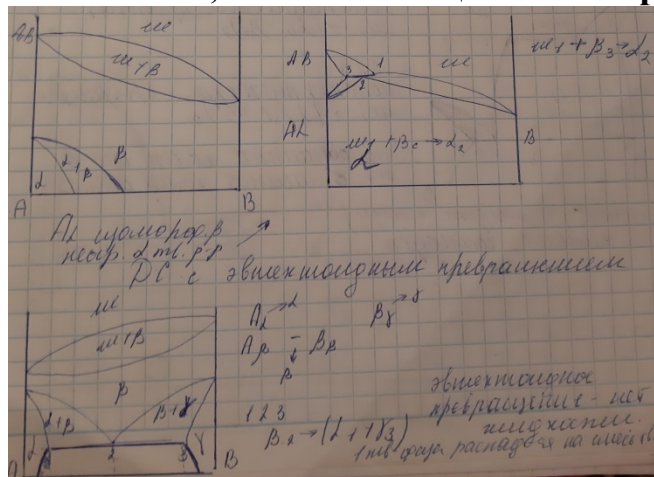 Aβ
ж
ж+β
β
α+β
α
A
B
Aβ
1
3
2
ж
Aα
B
ж₁+β₃→α₂
α
Aα изоморф. β
неогр. α тв. р-р
ДС с эвтектоидным превращением
ж
ж+β
β
α+β
β+γ
α
γ
1
2
3
B
Aα → α
Bγ → γ
Aβ – Bβ
↓
β
1 2 3
β₂→(α₁+γ₃)
эвтектоидное
превращение - нет
жидкости.
1 тв. фаза распадается на смесь